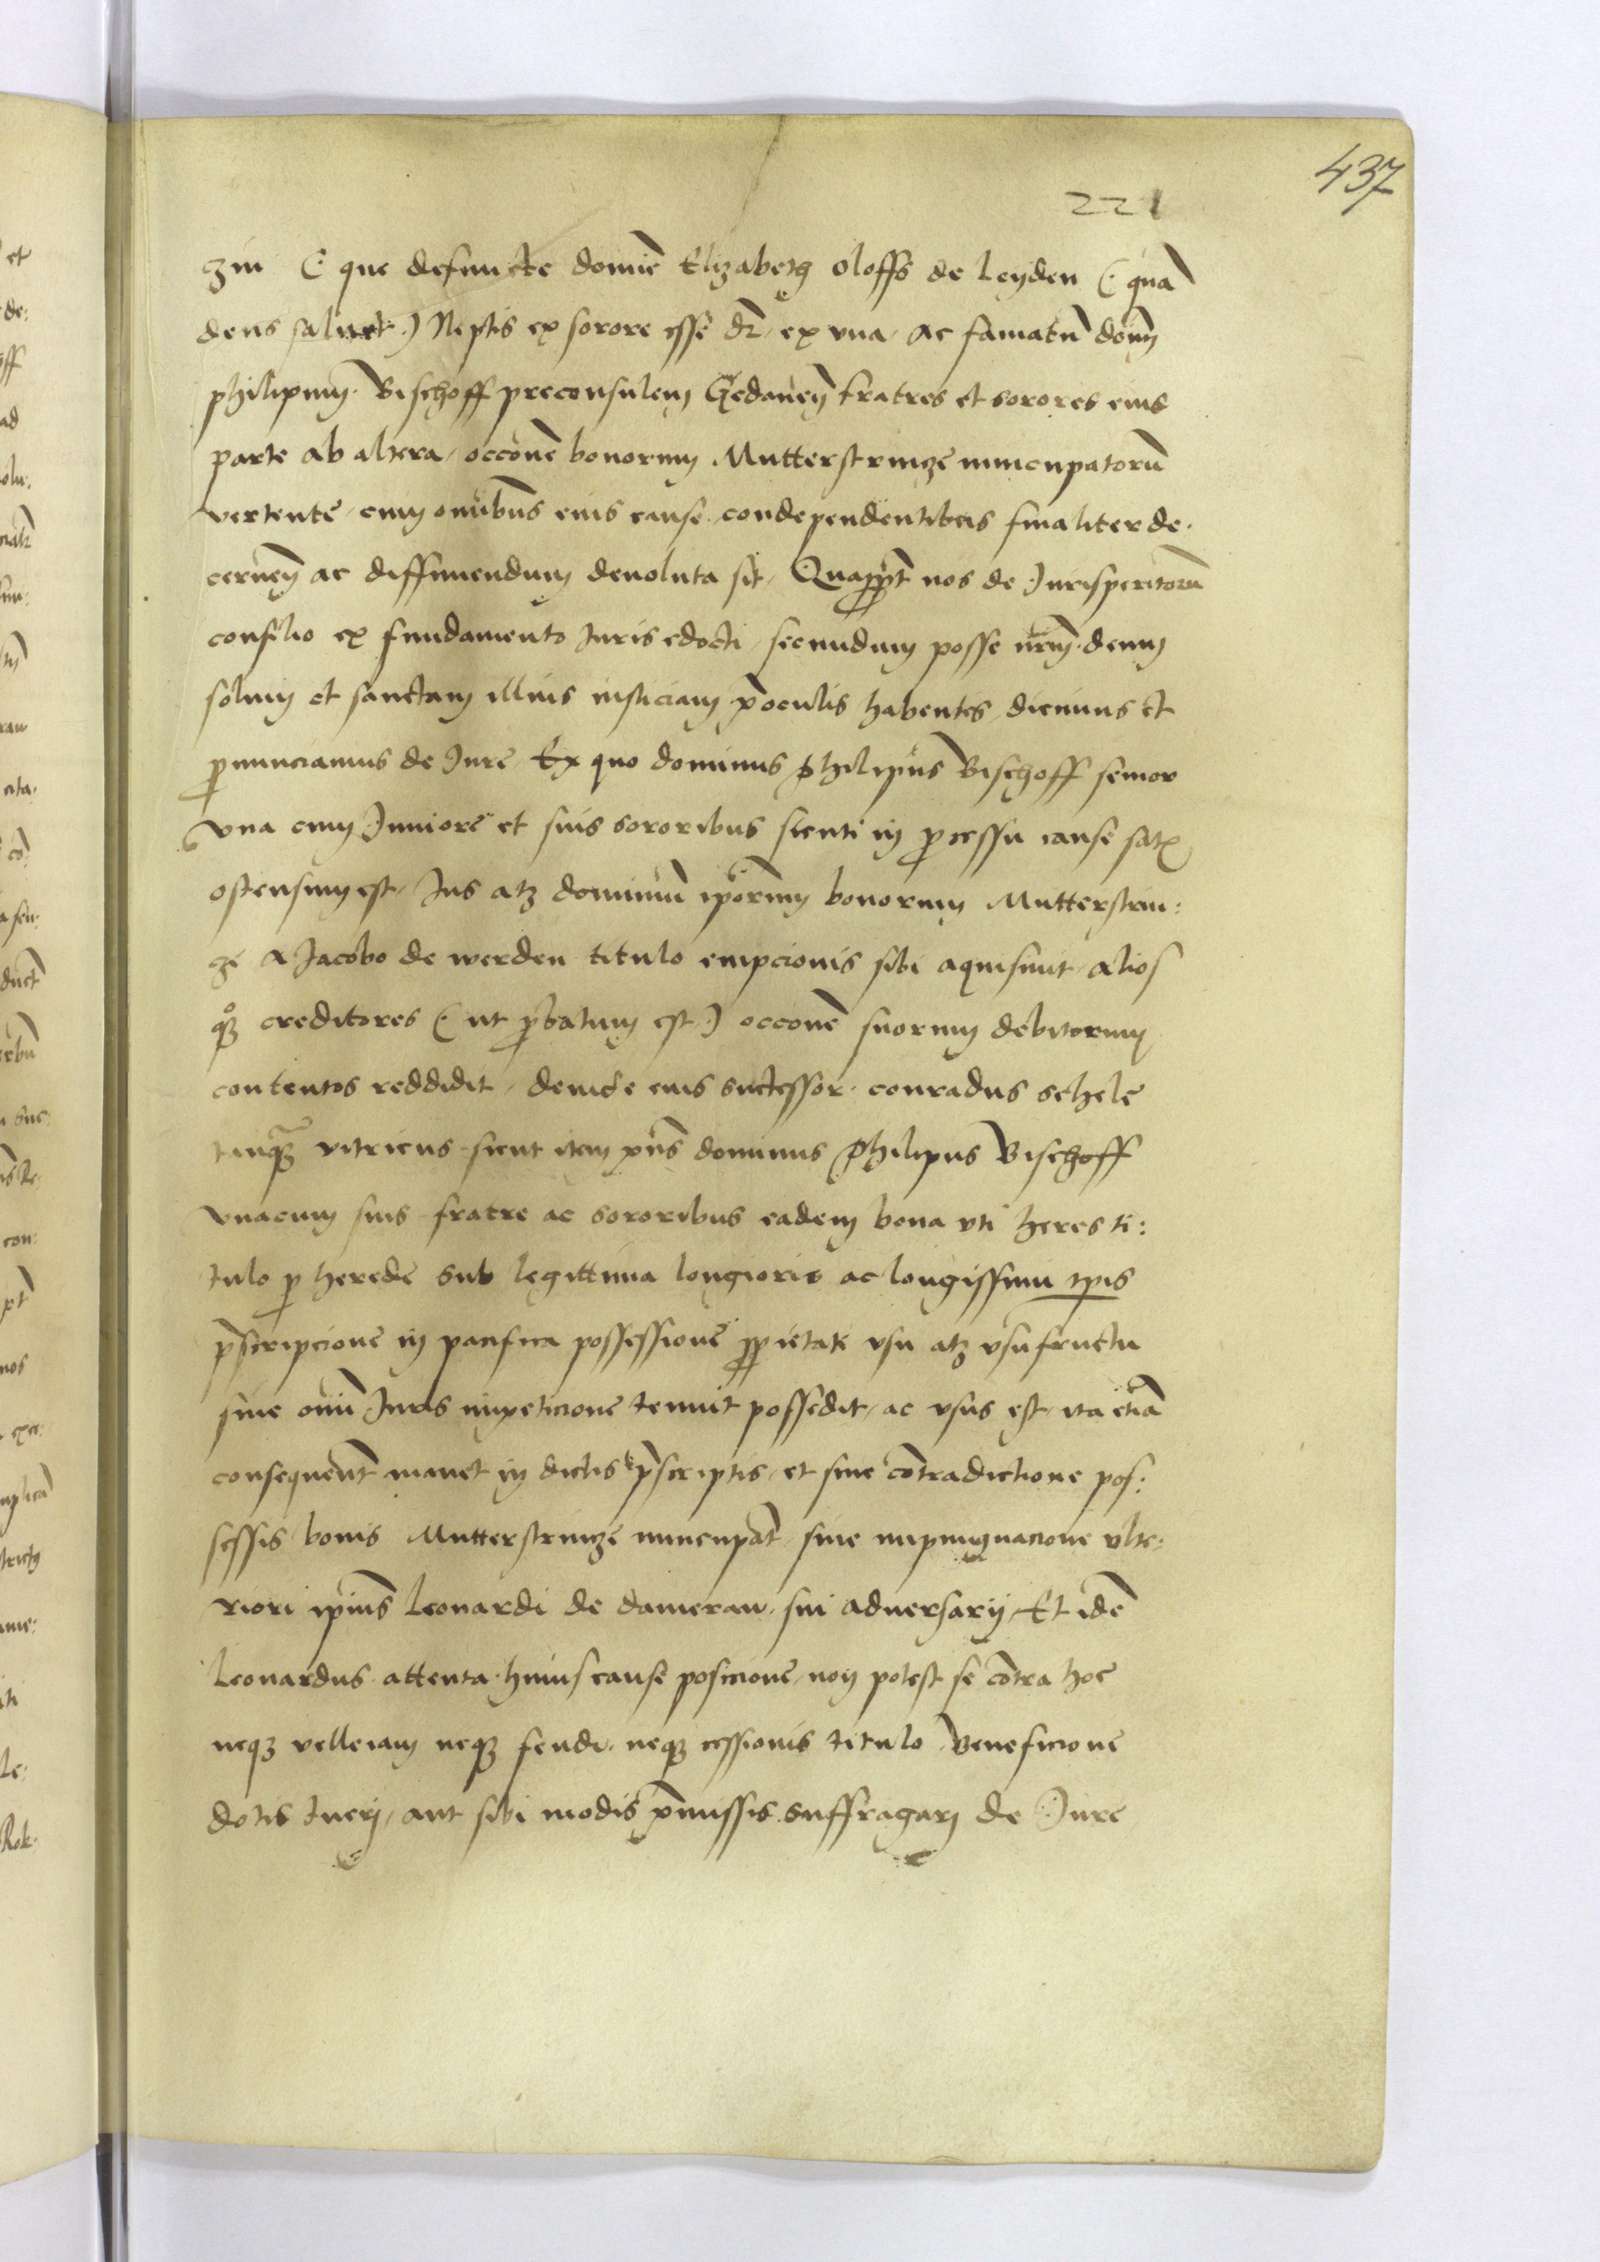 437
221
zin (: que defuncte domie Elizabeth Oloffs de Leyden (: quā
deus saluet :) Neptis ex sorore esse dr̄, ex vna, ac famatū dom̄
philipum Bischoff preconsulem Gedaneñ fratres et sorores eius
parte ab altera, occōne bonorum Mutterstrinze nuncupatorū
vertente, cum om̄ibus eius cause condependentibus finaliter de:
cerneñ ac diffiniendum deuoluta sit, Quapp̄t nos de Jurisperitorū
consilio ex fundamento Juris edocti, secundum posse nr̄m, deum
solum et sanctam illius iusticiam p̄ oculis habentes, dicimus et
pronunciamus de Jure, Ex quo dominus Philipus Bischoff senior
vna cum Juniore et suis sororibus sicuti in processu cause satis
ostensum est, Jus atqz dominiū ip̄orum bonorum Mutterstrin:
ze A Jacobo de werden titulo empcionis sibi aquisiuit, alios
qzo creditores (: ut probatum est :) occōne suorum debitorum
contentos reddidit, deinde eius successor Conradus schele
tanqz vitricus sicut item p̄ns dominus Philipus Bischoff
vnacum suis fratre ac sororibus eadem bona vti heres ti:
tulo pro herede sub legittima longioris ac longissimi tp̄is
p̄scripcione in pacifica possessione propietate vsu atqz vsufructu
sine om̄i Juris impeticione tenuit possedit, ac vsus est, ita etiā
consequent̄ manet in dictis p̄scriptis, et sine contradictione pos:
sessis bonis Mutterstrinze nuncupat̄ sine impugnacione vlte:
riori ip̄ius Leonardi de dameraw, sui aduersarij, Et idē
Leonardus attenta huius cause posicione, non potest se contra hoc
neqz velleiam neqz feudi, neqz cessionis titulo, Beneficione
dotis tuerj, aut sibi modis p̄missis suffragarj de Jure